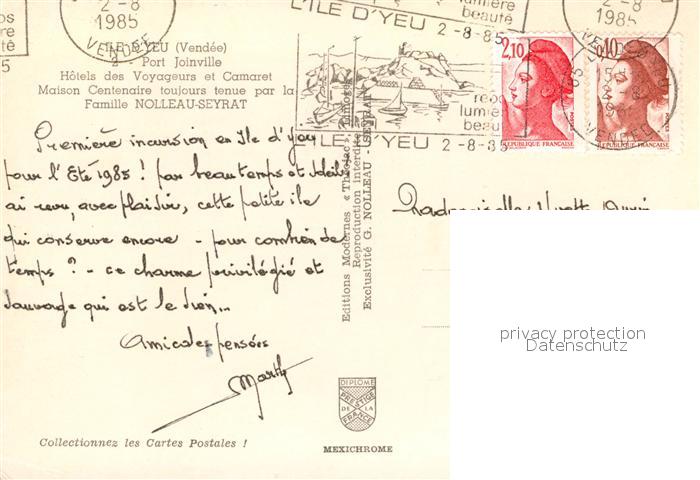 2-8
1985
VENDEE
L'ILE D'YEU 2-8-85
lumière
beauté
2-8
1985
L'ILE D'YEU (Vendée)
2 - Port Joinville
Hôtels des Voyageurs et Camaret
Maison Centenaire toujours tenue par la
Famille NOLLEAU-SEYRAT
2,10
REPUBLIQUE FRANÇAISE
0,40
REPUBLIQUE FRANÇAISE
VENDEE
repos
lumière
beauté
L'ILE D'YEU 2-8-85
Première incursion en Ile d'yeu
pour l'Eté 1985 ! par beau temps et soleil
ai revu, avec plaisir, cette petite ile
qui conserve encore - pour combien de
temps ? - ce charme privilégié et
sauvage qui est le sien...
Amicales pensées
Editions Modernes « Théojac » Limoges
Reproduction interdite
Exclusivité G. NOLLEAU - SEYRAT
Mademoiselle Yvette
privacy protection
Datenschutz
DIPLOME
PRESTIGE
DE LA
FRANCE
MEXICHROME
Collectionnez les Cartes Postales !